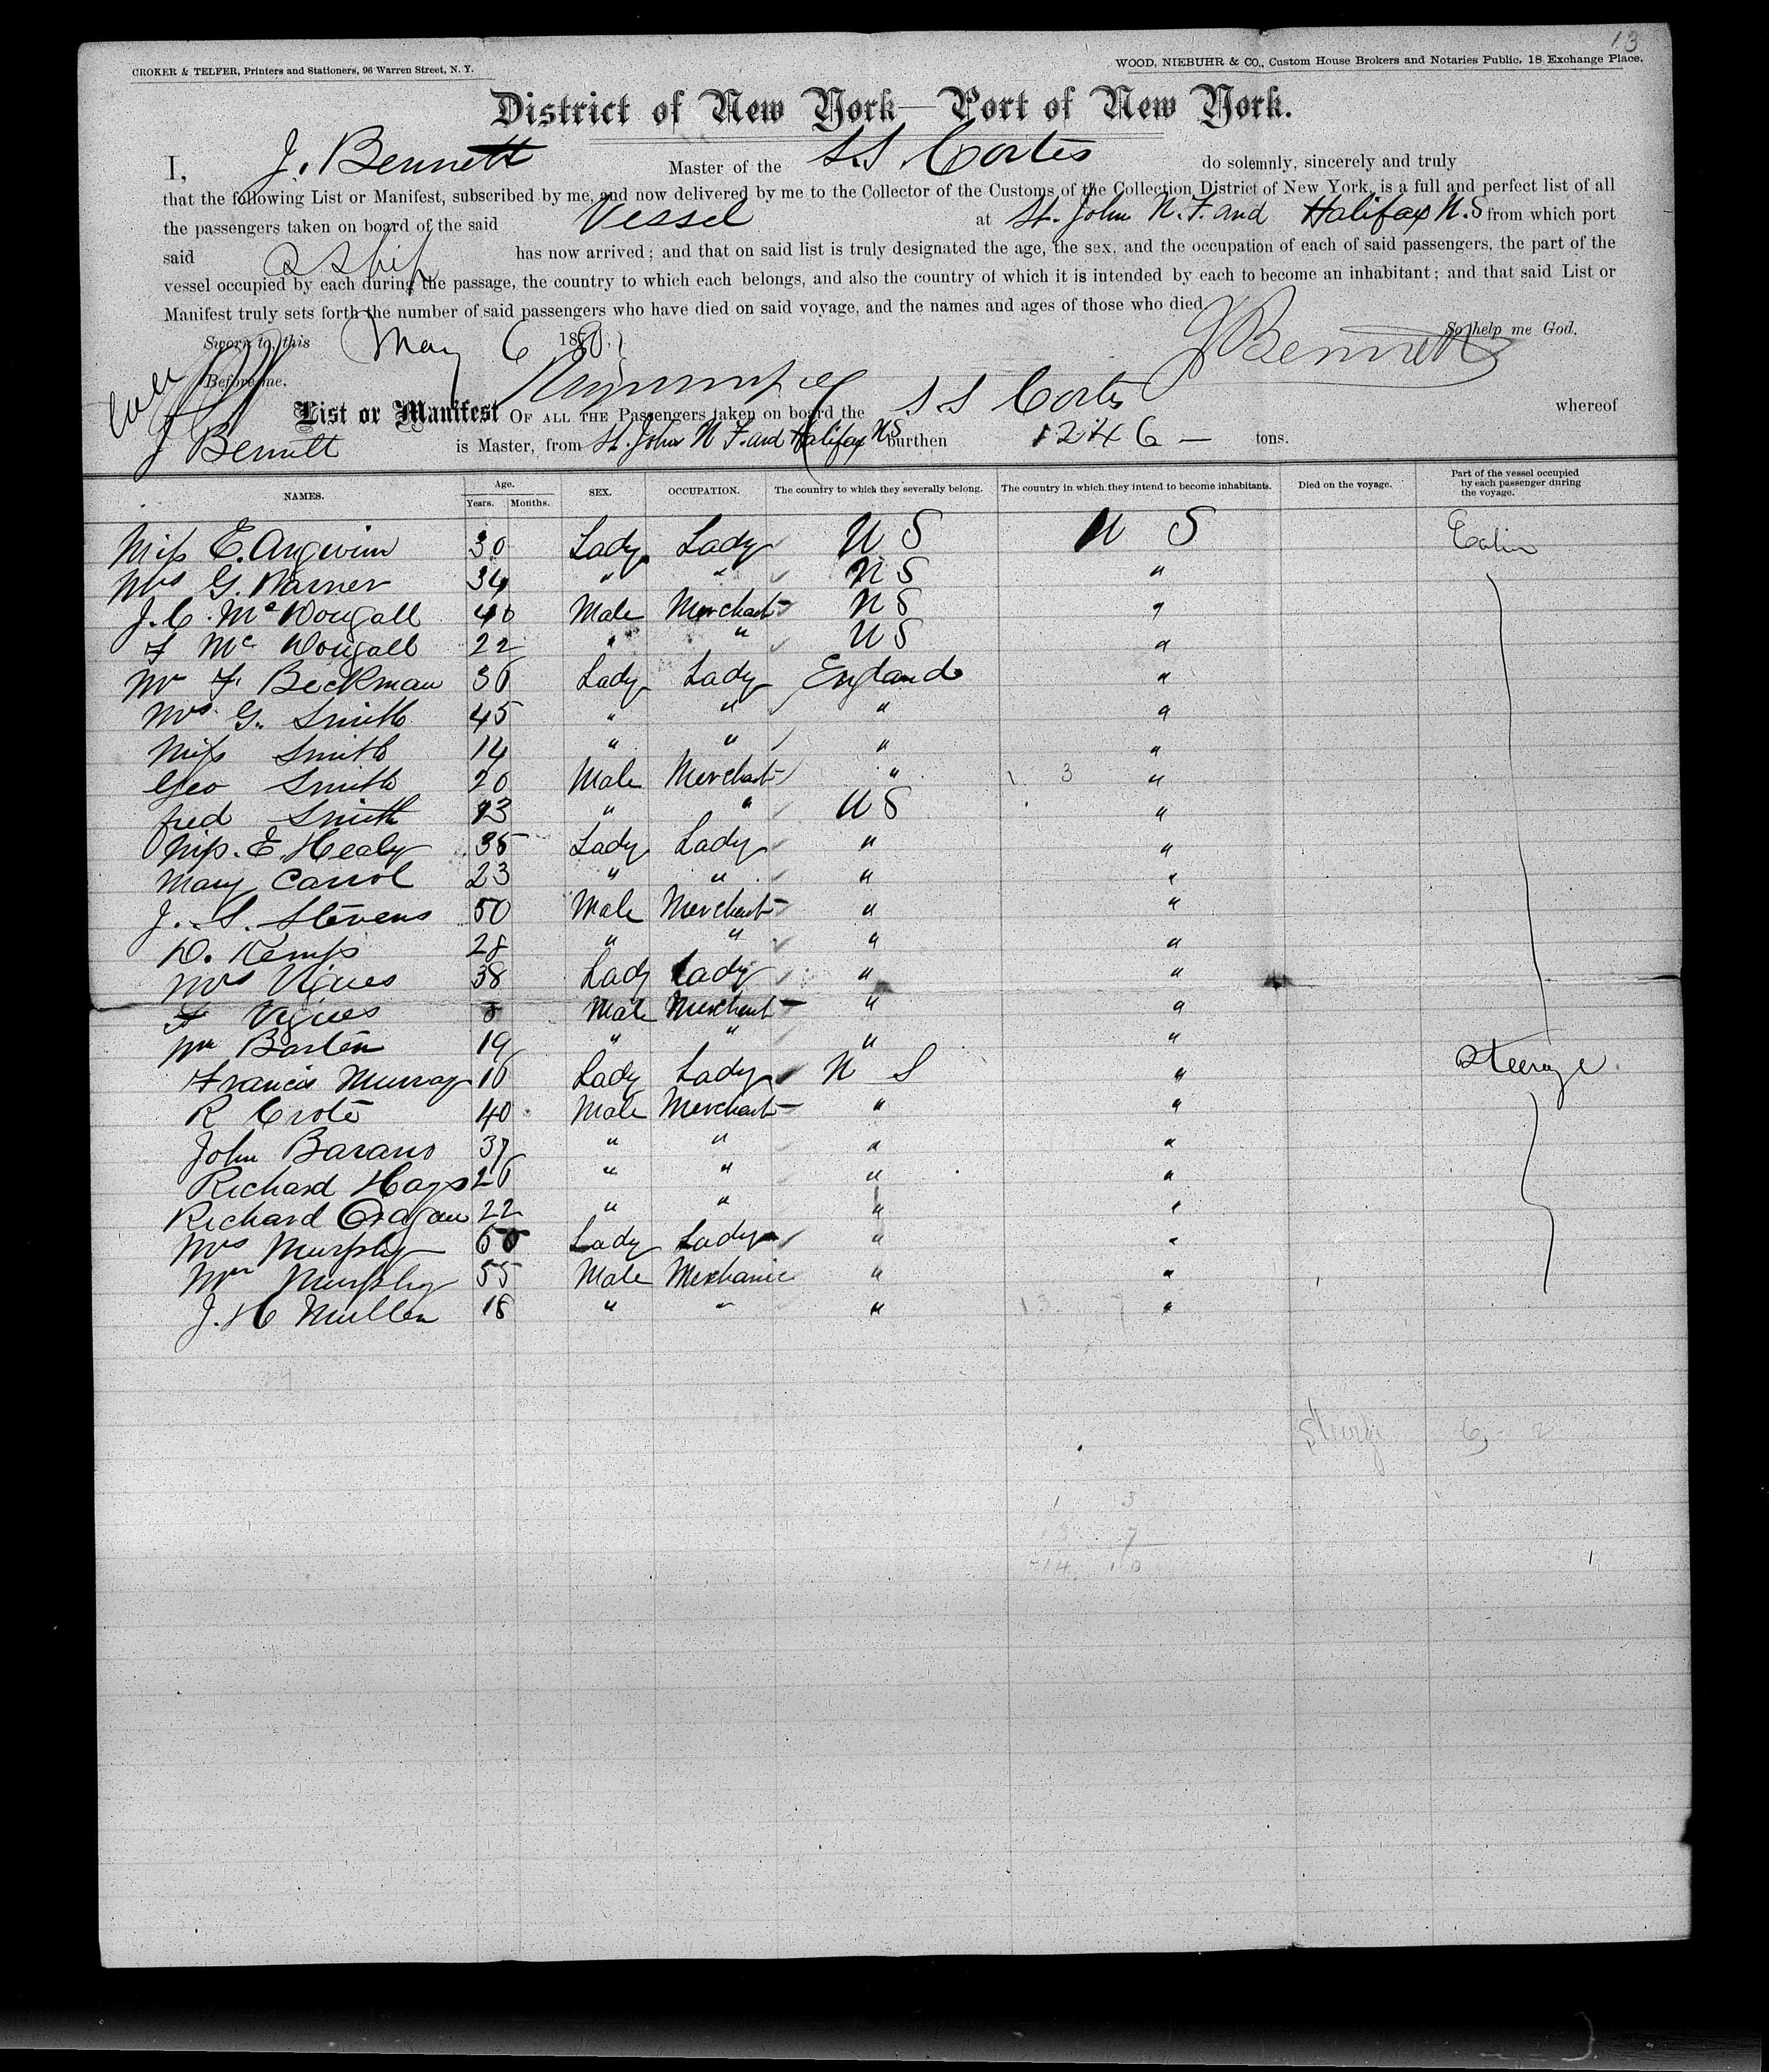 13
CROKER & TELFER, Printers and Stationers, 96 Warren Street, N. Y.
WOOD, NIEBUHR & CO., Custom House Brokers and Notaries Public, 18 Exchange Place.
District of New York—Port of New York.
I, J. Bennett Master of the S.S Cortes do solemnly, sincerely and truly
that the following List or Manifest, subscribed by me, and now delivered by me to the Collector of the Customs of the Collection District of New York, is a full and perfect list of all
the passengers taken on board of the said Vessel at St. John N. F. and Halifax N. S from which port
said S Ship has now arrived; and that on said list is truly designated the age, the sex, and the occupation of each of said passengers, the part of the
vessel occupied by each during the passage, the country to which each belongs, and also the country of which it is intended by each to become an inhabitant; and that said List or
Manifest truly sets forth the number of said passengers who have died on said voyage, and the names and ages of those who died.
Sworn to, this May 6 188 So help me God.
J Bennett
Before me,
List or Manifest OF ALL THE Passengers taken on board the S S Cortes whereof
J Bennett is Master, from St. John N F. and Halifax NS burthen 1246 — tons.
NAMES. Age. Years. Months. SEX. OCCUPATION. The country to which they severally belong. The country in which they intend to become inhabitants. Died on the voyage. Part of the vessel occupied by each passenger during the voyage.
Miss E. Angevinn 30 Lady Lady U S U S Cabin
Mrs G. Warner 34 " " N S "
J. C. McDougall 40 Male Merchant N S "
F McDougall 22 " " U S "
F. Beckman 30 Lady Lady England "
Mrs. G. Smith 45 " " " "
Miss Smith 14 " " " "
Geo Smith 20 Male Merchant " 1 3 "
fred Smith 13 " " U S "
Miss. E. Healy 35 Lady Lady " "
Mary Carrol 23 " " " "
J. S. Stevens 50 Male Merchant " "
D. Kemp 28 " " " "
Mrs Vigues 38 Lady Lady " "
F Vigues 8 Male Merchant " "
Wm Barten 19 " " " "
Francis Murray 16 Lady Lady N S " Steerage
R Crote 40 Male Merchant " "
John Barans 37 " " " "
Richard Hays 26 " " " "
Richard Cragan 22 " " " "
Mrs Murphy 60 Lady Lady " "
Mr Murphy 55 Male Mechanic " "
J. H Mullen 18 " " " 13 7 "
24
Steerage 6 2
1 3
13 7
14 10